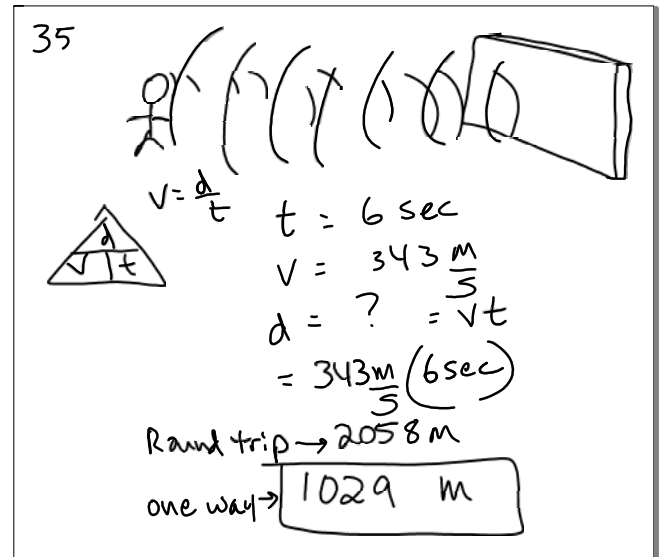 35
v = d/t
d
v t
t = 6 sec
v = 343 m/s
d = ? = vt
= 343 m/s (6 sec)
Round trip → 2058 m
one way → 1029 m